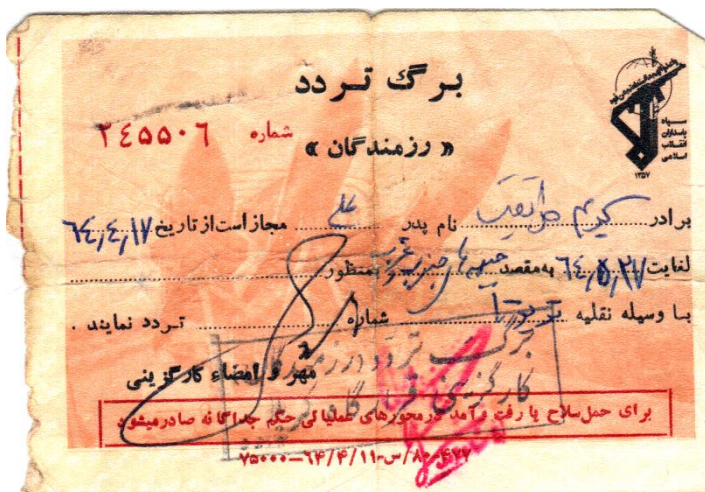 برگ تردد
« رزمندگان »
شماره ۲٤۵۵۰٦
سپاه
پاسداران
انقلاب
اسلامی
۱۳۵۷
برادر کریم نام پدر علی مجاز است از تاریخ ٦٤٫٤٫۱۷
لغایت ٦٤٫۵٫۲۷ به مقصد جبهه های جنوب و غرب بمنظور
با وسیله نقلیه شماره تردد نمایند .
مهر و امضاء کارگزینی
برگ تردد رزمندگان
کارگزینی
برای حمل سلاح یا رفت و آمد در محورهای عملیاتی حکم جداگانه صادر میشود
۷۵۰۰۰–۶۴/۴/۱۱-س/۸۰